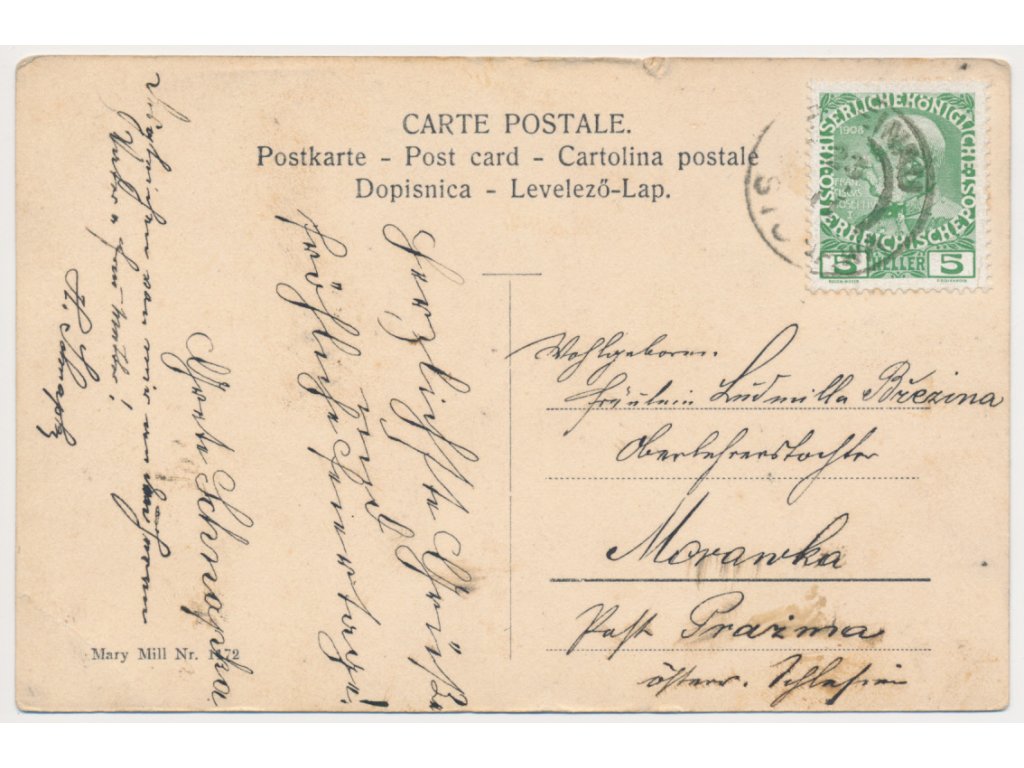 CARTE POSTALE.
Postkarte - Post card - Cartolina postale
Dopisnica - Levelező-Lap.
KAISERLICHE KÖNIGLICHE ÖSTERREICHISCHE POST
1908
5 HELLER 5
Wohlgeboren.
Fräulein Ludmilla Březina
Oberlehrerstochter
Morawka
Post Prażma
österr. Schlesien
Herzlichste Grüße
und
fröhliche Feiertage!
Grete Schnapka
von mir an
Vater u.
H. Schnapka
Mary Mill Nr. 1172